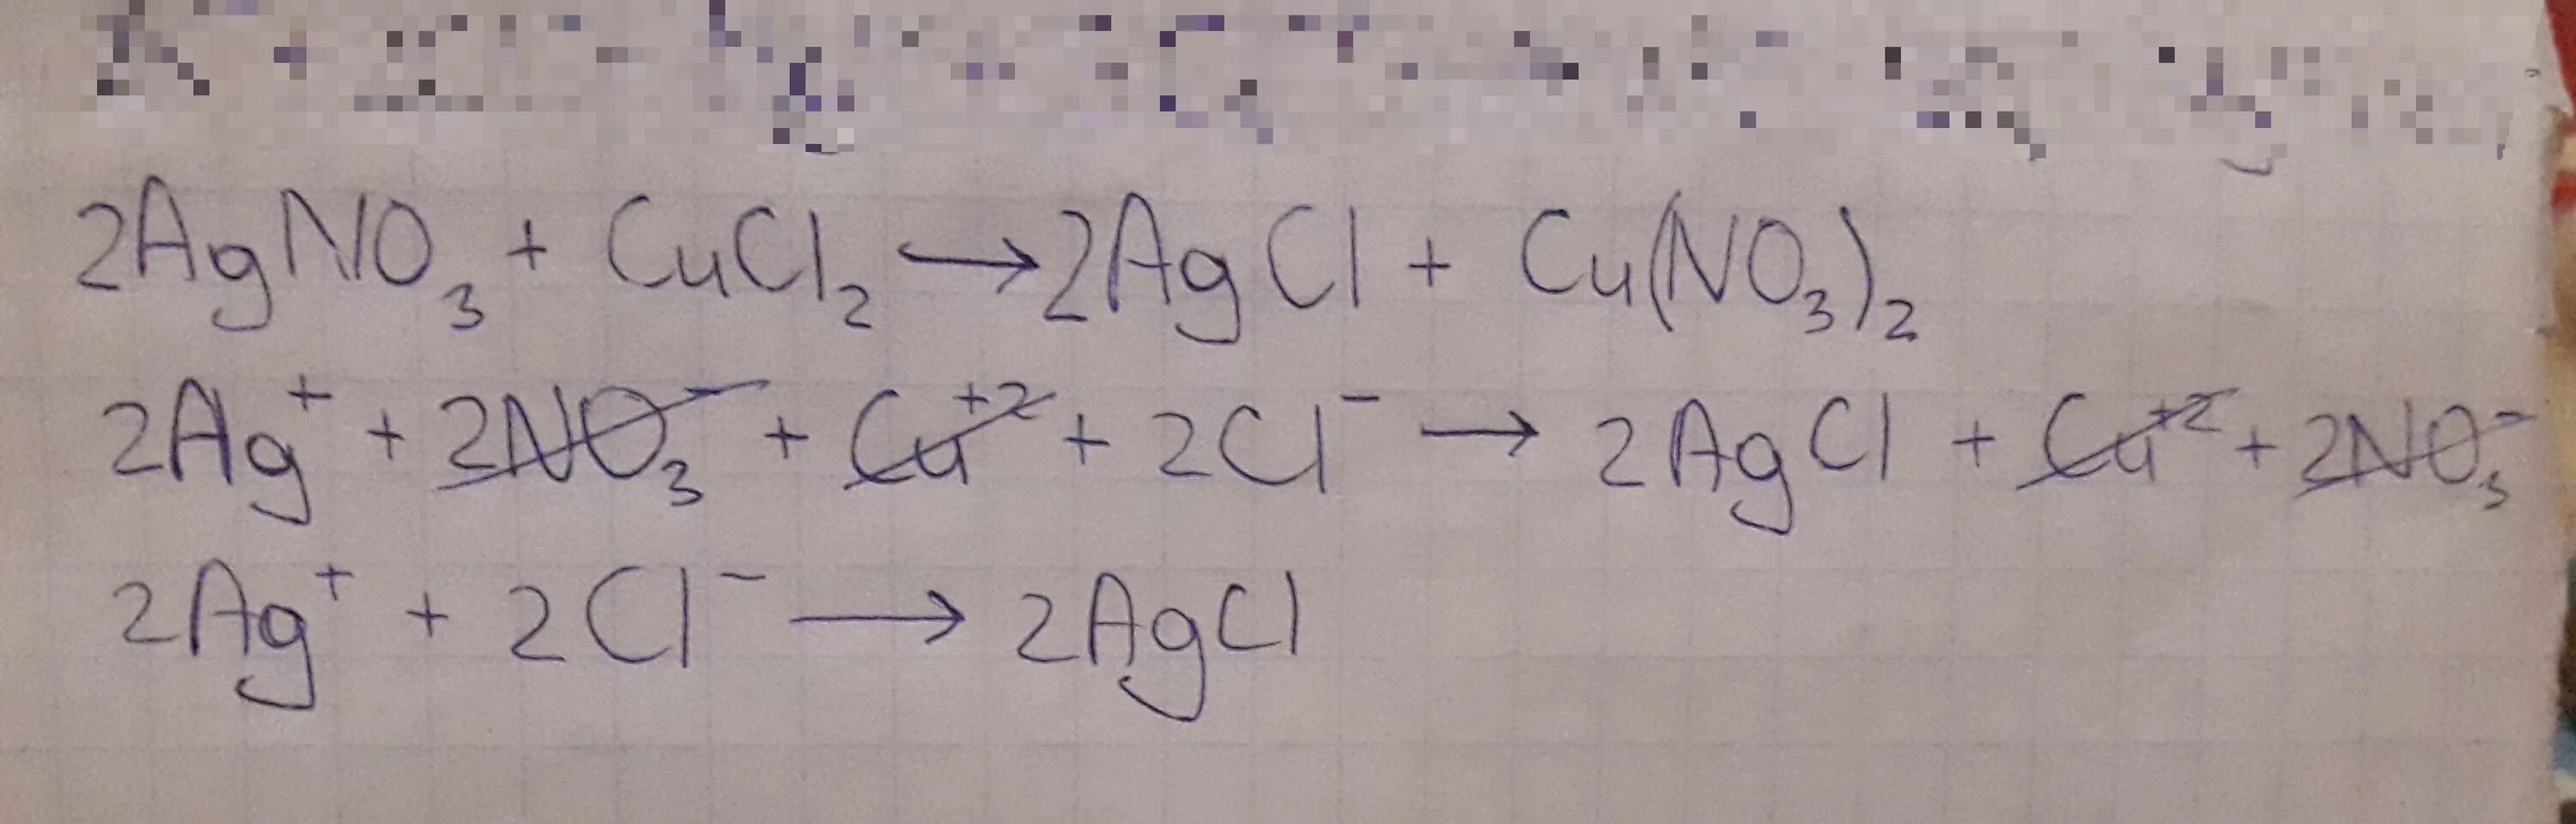 2AgNO₃ + CuCl₂ → 2AgCl + Cu(NO₃)₂
2Ag⁺ + 2NO₃⁻ + Cu⁺² + 2Cl⁻ → 2AgCl + Cu⁺² + 2NO₃⁻
2Ag⁺ + 2Cl⁻ → 2AgCl